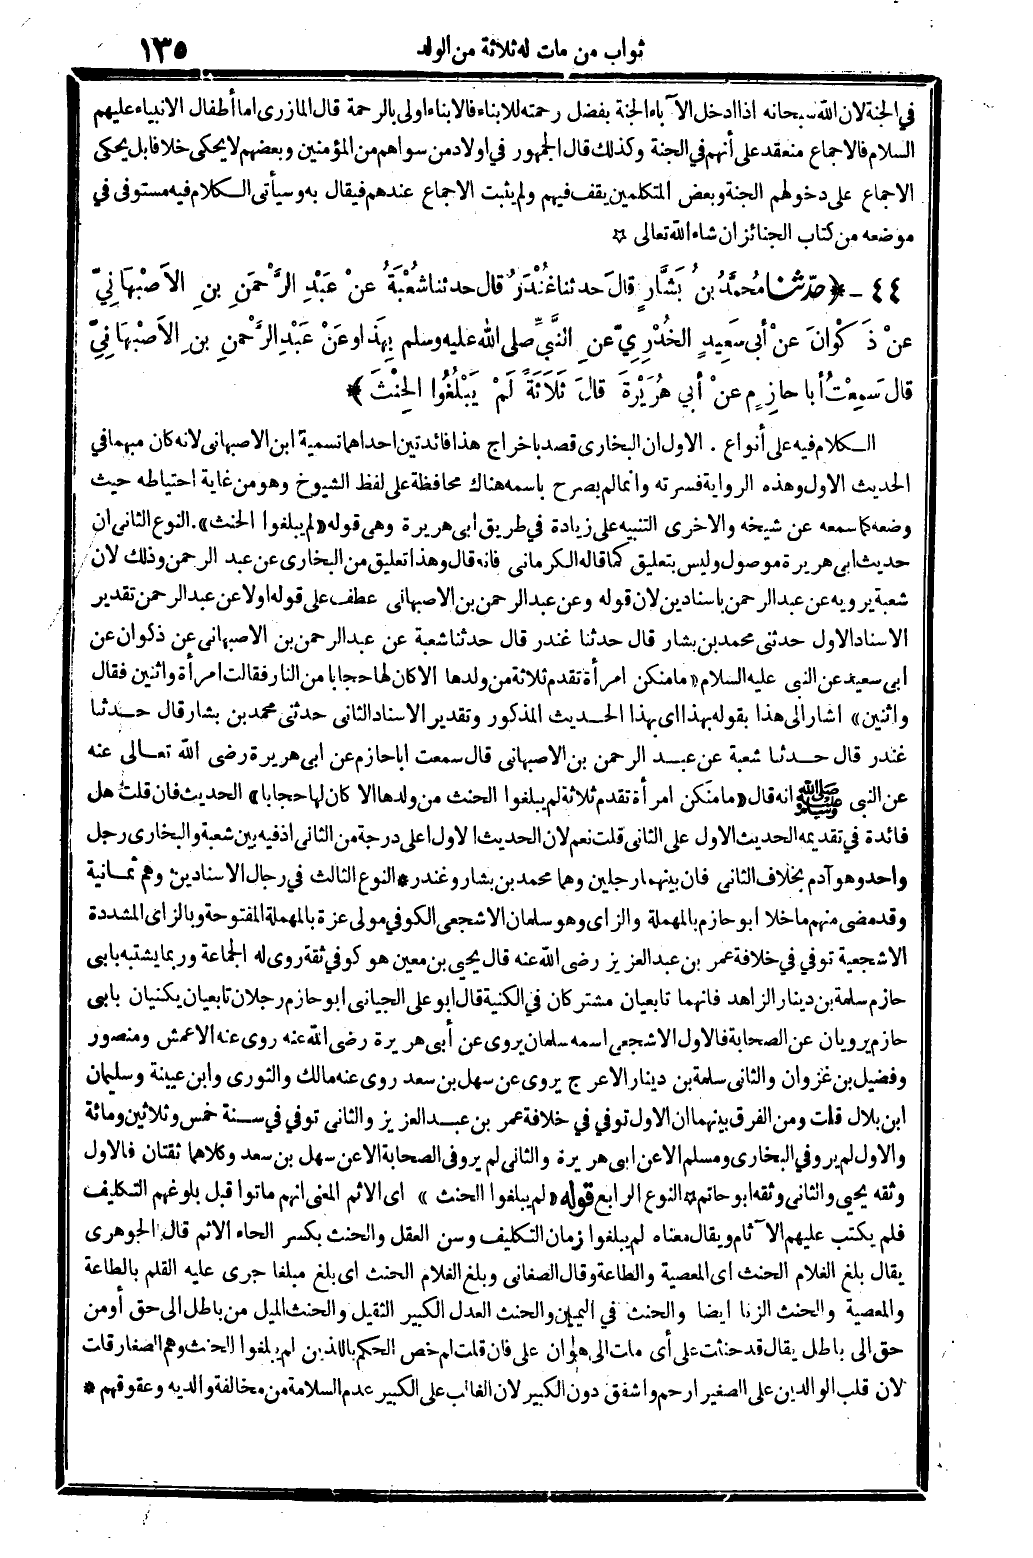 ثواب من مات له ثلاثة من الولد ١٣٥
في الجنة لان الله سبحانه اذا ادخل الآباء الجنة بفضل رحمته للابناء فالابناء اولى بالرحمة قال المازرى اما أطفال الانبياء عليهم
السلام فالاجماع منعقد على أنهم في الجنة وكذلك قال الجمهور في اولاد من سواهم من المؤمنين وبعضهم لا يحكى خلافا بل يحكى
الاجماع على دخولهم الجنة وبعض المتكلمين يقف فيهم ولم يثبت الاجماع عندهم فيقال به وسيأتى الكلام فيه مستوفى في
موضعه من كتاب الجنائز ان شاء الله تعالى ☆
٤٤ - ﴿ حدّثنا مُحمَّدُ بنُ بَشَّارٍ قالَ حدثنا غُنْدَرٌ قال حدثنا شُعْبَةُ عنْ عَبْدِ الرَّحْمَنِ بنِ الأَصْبَهَانِيِّ
عنْ ذَكْوَانَ عَنْ أبى سَعِيدٍ الخُدْرِيِّ عنِ النَّبِيِّ صلى الله عليه وسلم بِهَذا وعَنْ عَبْدِ الرَّحْمنِ بنِ الأَصْبَهانِيِّ
قال سَمِعْتُ أبا حازِمٍ عنْ أبي هُرَيْرةَ قالَ ثَلَاثَةً لَمْ يَبْلُغُوا الحِنْثَ ﴾*
الكلام فيه على أنواع . الاول ان البخارى قصد باخراج هذا فائدتين احداهما تسمية ابن الاصبهانى لانه كان مبهما في
الحديث الاول وهذه الرواية فسرته وانما لم يصرح باسمه هناك محافظة على لفظ الشيوخ وهو من غاية احتياطه حيث
وضعه كما سمعه عن شيخه والاخرى التنبيه على زيادة في طريق ابى هريرة وهى قوله «لم يبلغوا الحنث». النوع الثانى ان
حديث ابى هريرة موصول وليس بتعليق كما قاله الكرمانى فانه قال وهذا تعليق من البخارى عن عبد الرحمن وذلك لان
شعبة يرويه عن عبد الرحمن باسنادين لان قوله وعن عبد الرحمن بن الاصبهانى عطف على قوله اولا عن عبد الرحمن تقدير
الاسناد الاول حدثنى محمد بن بشار قال حدثنا غندر قال حدثنا شعبة عن عبد الرحمن بن الاصبهانى عن ذكوان عن
ابى سعيد عن النبى عليه السلام «ما منكن امرأة تقدم ثلاثة من ولدها الا كان لها حجابا من النار فقالت امرأة واثنين فقال
واثنين» اشار الى هذا بقوله بهذا اى بهذا الحديث المذكور وتقدير الاسناد الثانى حدثنى محمد بن بشار قال حدثنا
غندر قال حدثنا شعبة عن عبد الرحمن بن الاصبهانى قال سمعت ابا حازم عن ابى هريرة رضى الله تعالى عنه
عن النبى ﷺ انه قال «ما منكن امرأة تقدم ثلاثة لم يبلغوا الحنث من ولدها الا كان لها حجابا» الحديث فان قلت هل
فائدة في تقديمه الحديث الاول على الثانى قلت نعم لان الحديث الاول اعلى درجة من الثانى اذ فيه بين شعبة والبخارى رجل
واحد وهو آدم بخلاف الثانى فان بينهما رجلين وهما محمد بن بشار وغندر * النوع الثالث في رجال الاسنادين وهم ثمانية
وقد مضى منهم ما خلا ابو حازم بالمهملة والزاى وهو سلمان الاشجعى الكوفي مولى عزة بالمهملة المفتوحة وبالزاى المشددة
الاشجعية توفي في خلافة عمر بن عبد العزيز رضى الله عنه قال يحيى بن معين هو كوفي ثقة روى له الجماعة وربما يشتبه بابى
حازم سلمة بن دينار الزاهد فانهما تابعيان مشتركان في الكنية قال ابو على الجيانى ابو حازم رجلان تابعيان يكنيان بابى
حازم يرويان عن الصحابة فالاول الاشجعى اسمه سلمان يروى عن أبى هريرة رضى الله عنه روى عنه الاعمش ومنصور
وفضيل بن غزوان والثانى سلمة بن دينار الاعرج يروى عن سهل بن سعد روى عنه مالك والثورى وابن عيينة وسليمان
ابن بلال قلت ومن الفرق بينهما ان الاول توفي في خلافة عمر بن عبد العزيز والثانى توفي في سنة خمس وثلاثين ومائة
والاول لم يرو في البخارى ومسلم الا عن ابى هريرة والثانى لم يرو في الصحابة الا عن سهل بن سعد وكلاهما ثقتان فالاول
وثقه يحيى والثانى وثقه ابو حاتم ☆ النوع الرابع قوله «لم يبلغوا الحنث» اى الاثم المعنى انهم ماتوا قبل بلوغهم التكليف
فلم يكتب عليهم الآثام ويقال معناه لم يبلغوا زمان التكليف وسن العقل والحنث بكسر الحاء الاثم قال الجوهرى
يقال بلغ الغلام الحنث اى المعصية والطاعة وقال الصغانى وبلغ الغلام الحنث اى بلغ مبلغا جرى عليه القلم بالطاعة
والمعصية والحنث الزنا ايضا والحنث في اليمين والحنث العدل الكبير الثقيل والحنث الميل من باطل الى حق أو من
حق الى باطل يقال قد حنثت على أى ملت الى هوان على فان قلت لم خص الحكم بالذين لم يبلغوا الحنث وهم الصغار قلت
لان قلب الوالدين على الصغير ارحم واشفق دون الكبير لان الغالب على الكبير عدم السلامة من مخالفة والديه وعقوقهم *